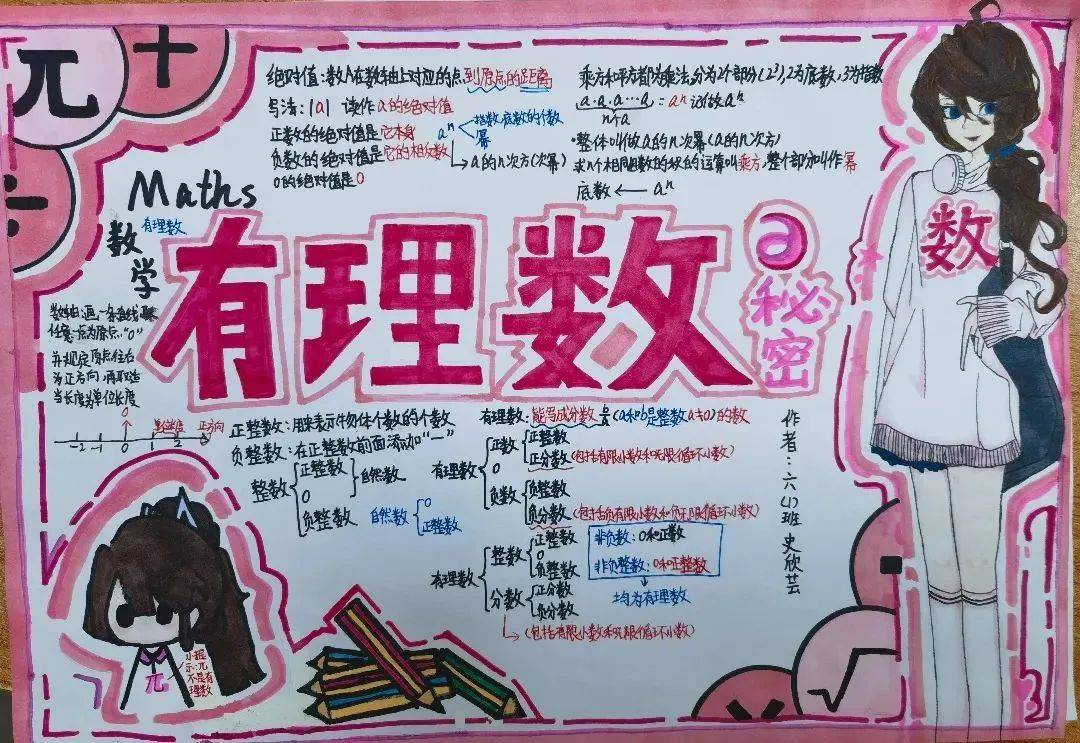 π
+
÷
绝对值:数A在数轴上对应的点到原点的距离
写法:|a| 读作a的绝对值
正数的绝对值是它本身
负数的绝对值是它的相反数
0的绝对值是0
aⁿ
指数:底数的个数
幂
→a的n次方(次幂)
乘方和平方都为乘法,分为2个部分(2³),2为底数,3为指数
a·a·a…a/n个a = aⁿ 记做aⁿ
·整体叫做a的n次幂(a的n次方)
求n个相同数的积的运算叫乘方,整个部分叫作幂
底数←aⁿ
Maths
数学
有理数
有理数
の
秘密
数
数轴:画一条直线
任意一点为原点"0"
并规定原点往右
为正方向,再取适
当长度为单位长度
0
单位长度
正方向
-2 -1 0 1 2 3
正整数:用来表示物体个数的个数
负整数:在正整数前面添加"-"
整数
正整数
0
负整数
自然数
自然数
0
正整数
有理数:能写成分数b/a(a和b是整数a≠0)的数
有理数
正数
正整数
正分数(包括有限小数和无限循环小数)
0
负数
负整数
负分数(包括负有限小数和负无限循环小数)
有理数
整数
正整数
0
负整数
分数
正分数
负分数
(包括有限小数和无限循环小数)
非负数:0和正数
非负整数:0和正整数
均为有理数
作者:六(1)班 史欣芸
π
小提
示:π
不是有
理数
1
2
3
√